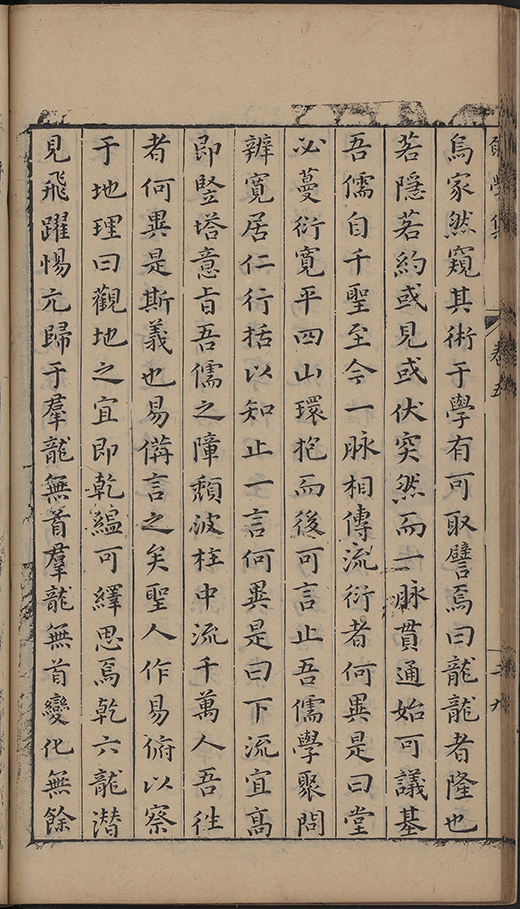 集 卷五
烏家然窺其術于學有可取譬焉曰龍龍者隆也
若隱若約或見或伏突然而一脉貫通始可議基
吾儒自千聖至今一脉相傳流衍者何異是曰堂
必蔓衍寬平四山環抱而後可言止吾儒學聚問
辨寬居仁行括以知止一言何異是曰下流宜高
即竪塔意旨吾儒之障頹波柱中流千萬人吾徃
者何異是斯義也易備言之矣聖人作易俯以察
于地理曰觀地之宜即乾緼可繹思焉乾六龍潜
見飛躍惕亢歸于羣龍無首羣龍無首變化無餘